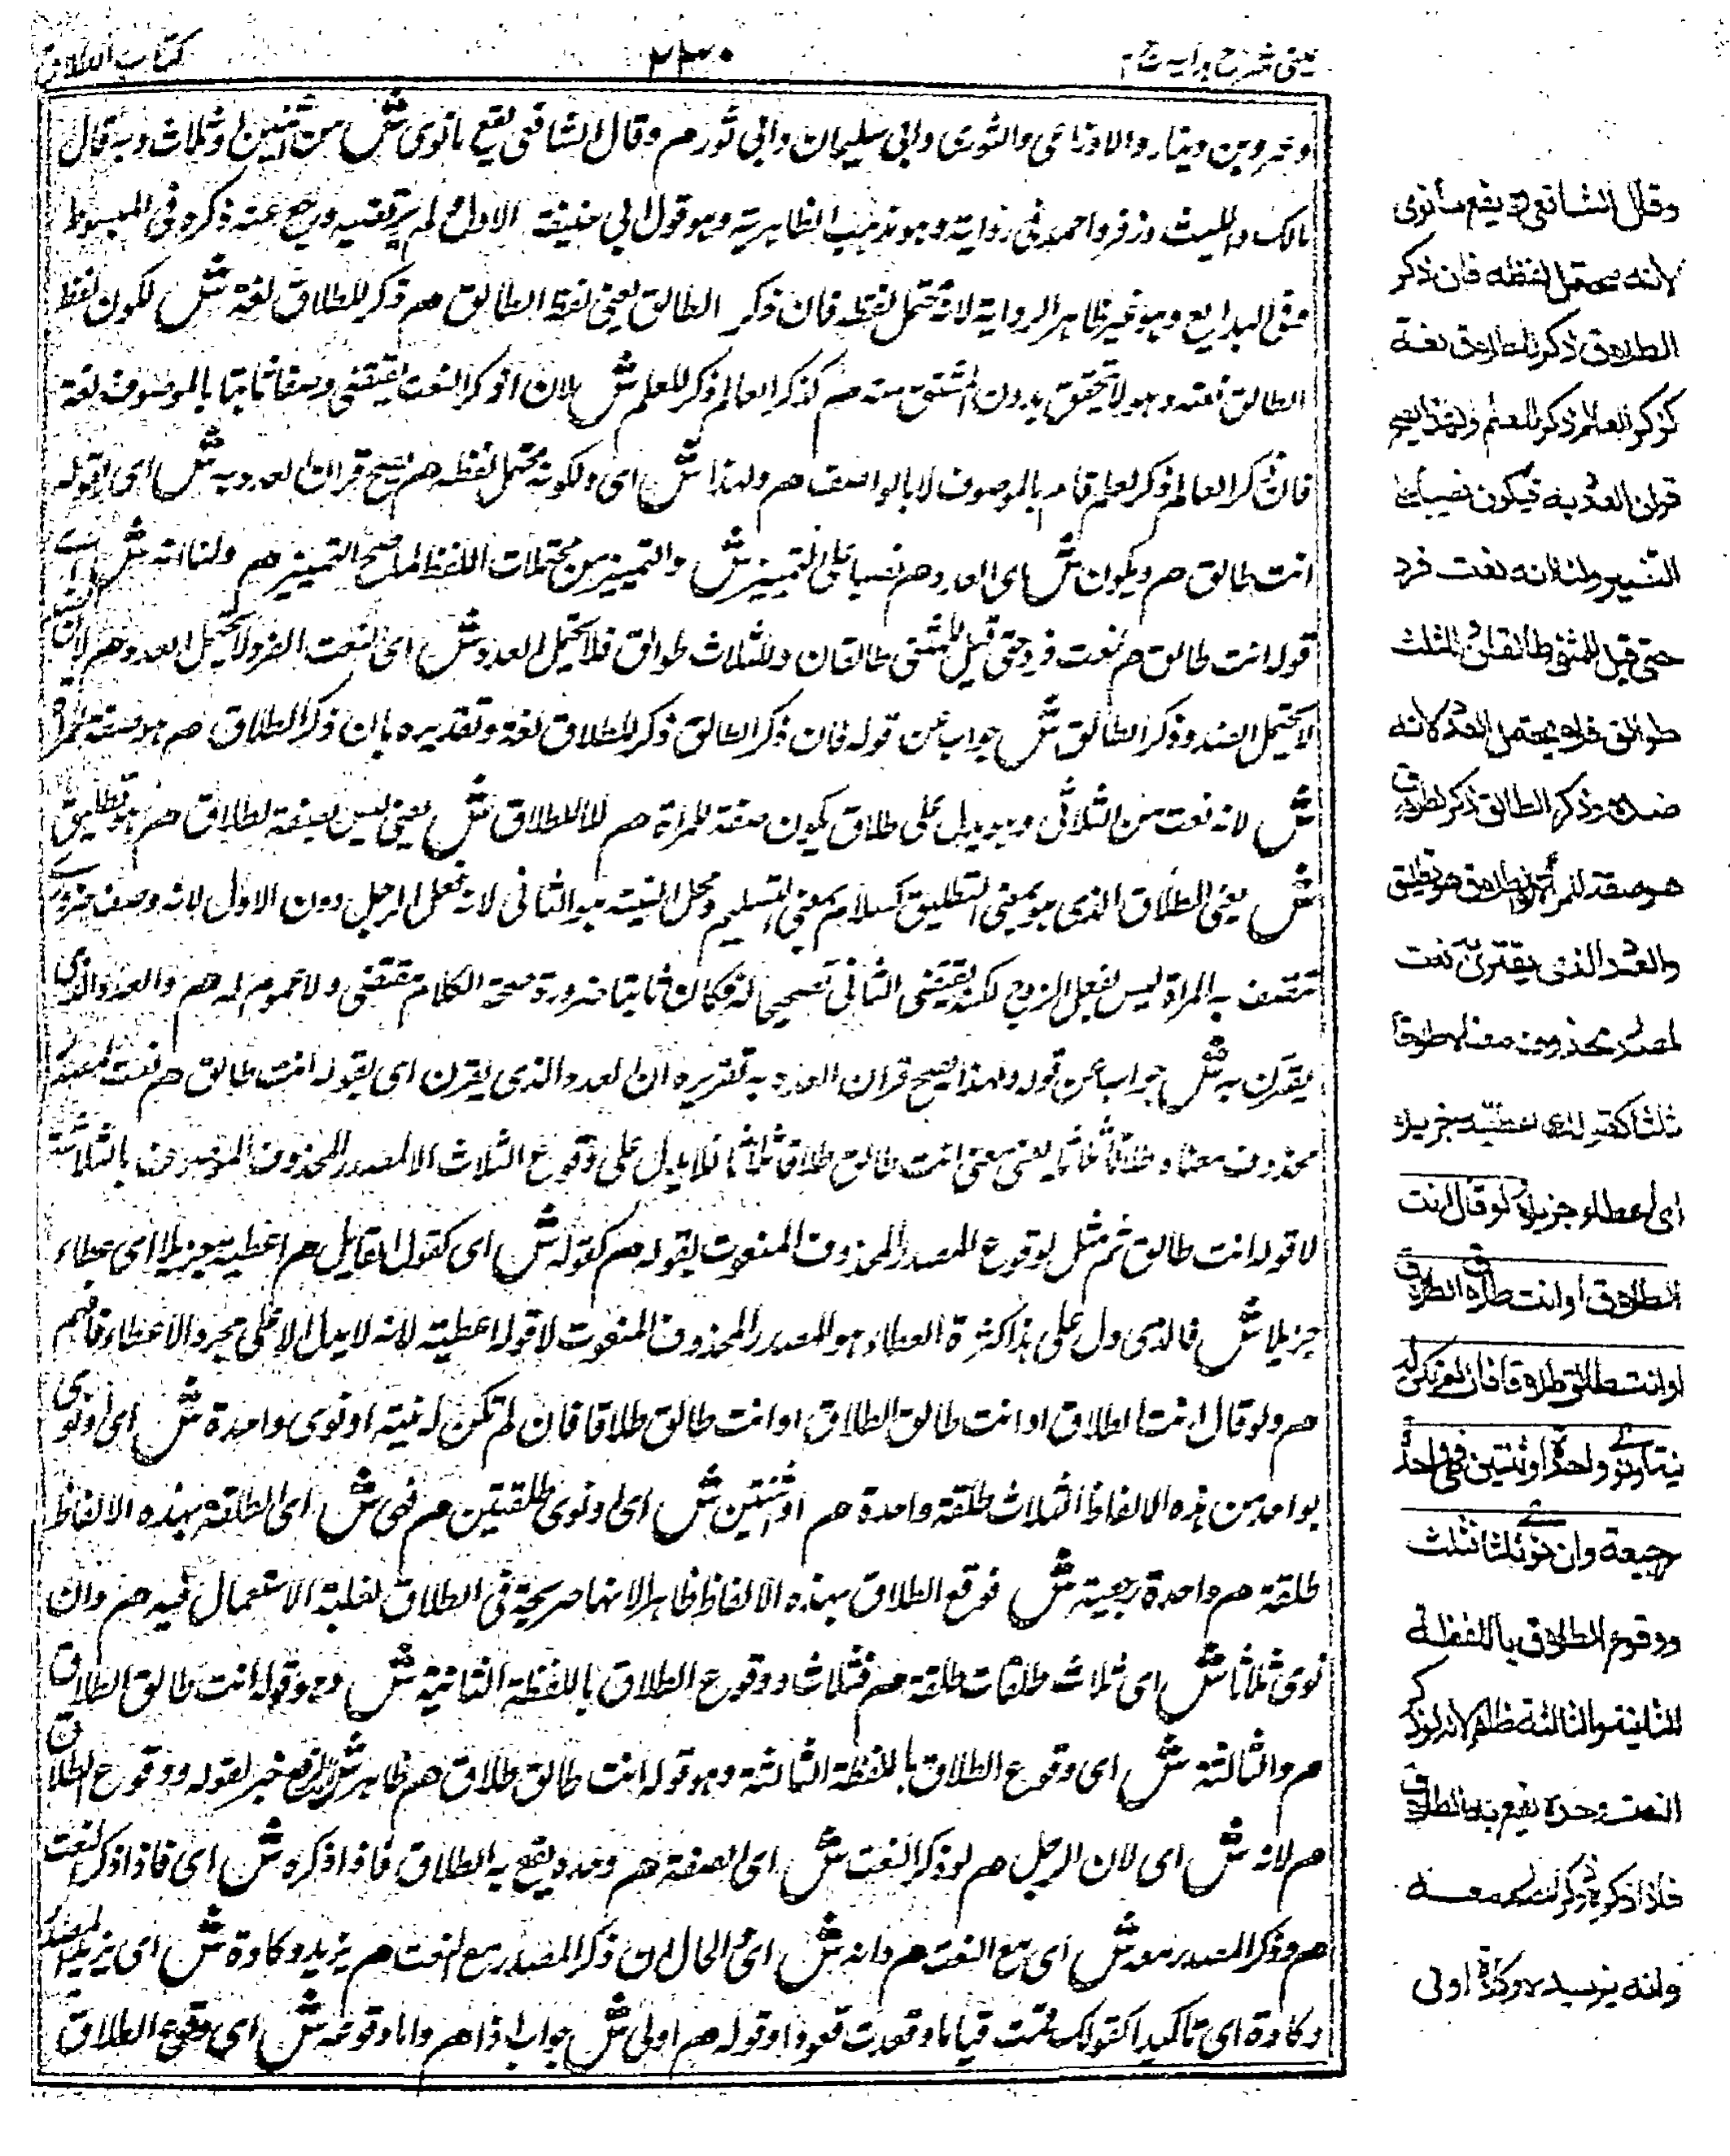 عینی شرح ہدایہ ج ٢
٢٣٠
کتاب الطلاق
وعمرو بن دینار والاوزاعی والثوری وابی سلیمان وابی ثور م وقال الشافعی یقع مانوی ش من اثنین او ثلاث وبه قال
مالک واللیث وزفر واحمد فی روایة وہو مذہب الظاہریة وہو قول ابی حنیفة الاول ثم لم یرتضیه ورجع عنه ذکره فی المبسوط
وفی البدایع وہو غیر ظاہر الروایة لانه محتمل لفظه فان ذکر الطالق یعنی لفظ الطالق م ذکر للطلاق لغة ش لکون لفظ
الطالق نعته وہو لا یتحقق بدون المشتق منه م کذکر العالم ذکر للعلم ش لان ذکر النعت یقتضی وصفا ثابتا بالموصوف لغة
فان ذکر العالم ذکر لعلم قام بالموصوف لا بالواصف م ولہذا ش ای ولکونه محتمل لفظه م یصح قران العدد به ش ای بقوله
انت طالق م ویکون ش ای العدد م نصبا علی التمییز ش والتمییز من محتملات اللفظ لما صح التمییز م ولنا انه ش ای ان
قوله انت طالق م نعت فرد حتی قیل للمثنی طالقان وللثلاث طوالق فلا یحتمل العدد ش ای النعت الفرد لا یحتمل العدد م لانه
لا یحتمل الضد وذکر الطالق ش جواب عن قوله فان ذکر الطالق ذکر للطلاق لغة وتقدیره بان ذکر الطلاق م ہو صفة للمرأة
ش لانه نعت من الثلاثی وہو یدل علی طلاق یکون صفة للمراة م لا لطلاق ش یعنی لیس بصفة لطلاق م ہو تطلیق
ش یعنی الطلاق الذی ہو بمعنی التطلیق کسلام بمعنی التسلیم ومحل النیة ہو الثانی لانه فعل الرجل دون الاول لانه وصف ضروری
تتصف به المراة لیس بفعل الزوج لکنه یقتضی الثانی تصحیحا له فکان ثابتا ضرورة صحة الکلام مقتضی ولا عموم له م والعدد الذی
یقترن به ش جواب عن قوله ولہذا یصح قران العدد به تقریره ان العدد الذی یقرن ای بقوله انت طالق م نعت لمصدر
محذوف معناه طلاقا ثلاثا یعنی معنی انت طالق طلاقا ثلاثا فلا یدل علی وقوع الثلاث الا المصدر المحذوف الموصوف بالثلاثة
لا قوله انت طالق ثم مثل لوقوع المصدر المحذوف المنعوت بقوله م کقوله ش ای کقول القایل م اعطیته جزیلا ای عطاء
جزیلا ش فالذی دل علی ہذا کثرة العطاء ہو المصدر المحذوف المنعوت لا قوله اعطیته لانه لا یدل الا علی مجرد الاعطاء فافہم
م ولو قال انت الطلاق او انت طالق الطلاق او انت طالق طلاقا فان لم تکن له نیة او نوی واحدة ش ای او نوی
بواحد من ہذه الالفاظ الثلاث طلقة واحدة م او ثنتین ش ای او نوی طلقتین م فہی ش ای الطلقة بہذه الالفاظ
طلقة م واحدة رجعیة ش فوقع الطلاق بہذه الالفاظ ظاہر لانہا صریحة فی الطلاق لغلبة الاستعمال فیه م وان
نوی ثلاثا ش ای ثلاث طلقات طلقة م فثلاث ووقوع الطلاق باللفظة الثانیة ش وہو قوله انت طالق الطلاق
م والثالثة ش ای وقوع الطلاق باللفظة الثالثة وہو قوله انت طالق طلاق م ظاہر ش بالرفع خبر لقوله ووقوع الطلاق
م لانه ش ای لان الرجل م لو ذکر النعت ش ای الصفة م وحده یقع به الطلاق فاذا ذکره ش ای فاذا ذکر النعت
م وذکر المصدر معه ش ای مع النعت م وانه ش ای والحال ان ذکر المصدر مع النعت م یزیده وکادة ش ای یزید المصدر
وکادة ای تاکیدا کقولک قمت قیاما وقعدت قعودا وقوله م اولی ش جواب اذا م واما وقوعه ش ای وقوع الطلاق
وقال الشافعی رح یقع مانوی
لانه محتمل لفظه فان ذکر
الطلاق ذکر للطلاق لغة
کذکر العالم ذکر للعلم ولهذا یصح
قران العدد به فیکون نصبا علی
التفسیر ولنا انه نعت فرد
حتی قیل للمثنی طالقان وللثلث
طوالق فلا یحتمل العدد لانه
ضده وذکر الطالق ذکر لطلاق
هو صفة للمرأة لا لطلاق هو تطلیق
والعدد الذی یقترن به نعت
لمصدر محذوف معناه طلاقا
ثلثا کقولک اعطیته جزیلا
ای اعطاء جزیلا ولو قال انت
الطلاق او انت طالق الطلاق
او انت طالق طلاقا فان لم تکن له
نیة او نوی واحدة او ثنتین فهی واحدة
رجعیة وان نوی ثلثا فثلث
ووقوع الطلاق باللفظة
الثانیة والثالثة ظاهر لانه لو ذکر
النعت وحده یقع به الطلاق
فاذا ذکره وذکر المصدر معه
وانه یزیده وکادة اولی